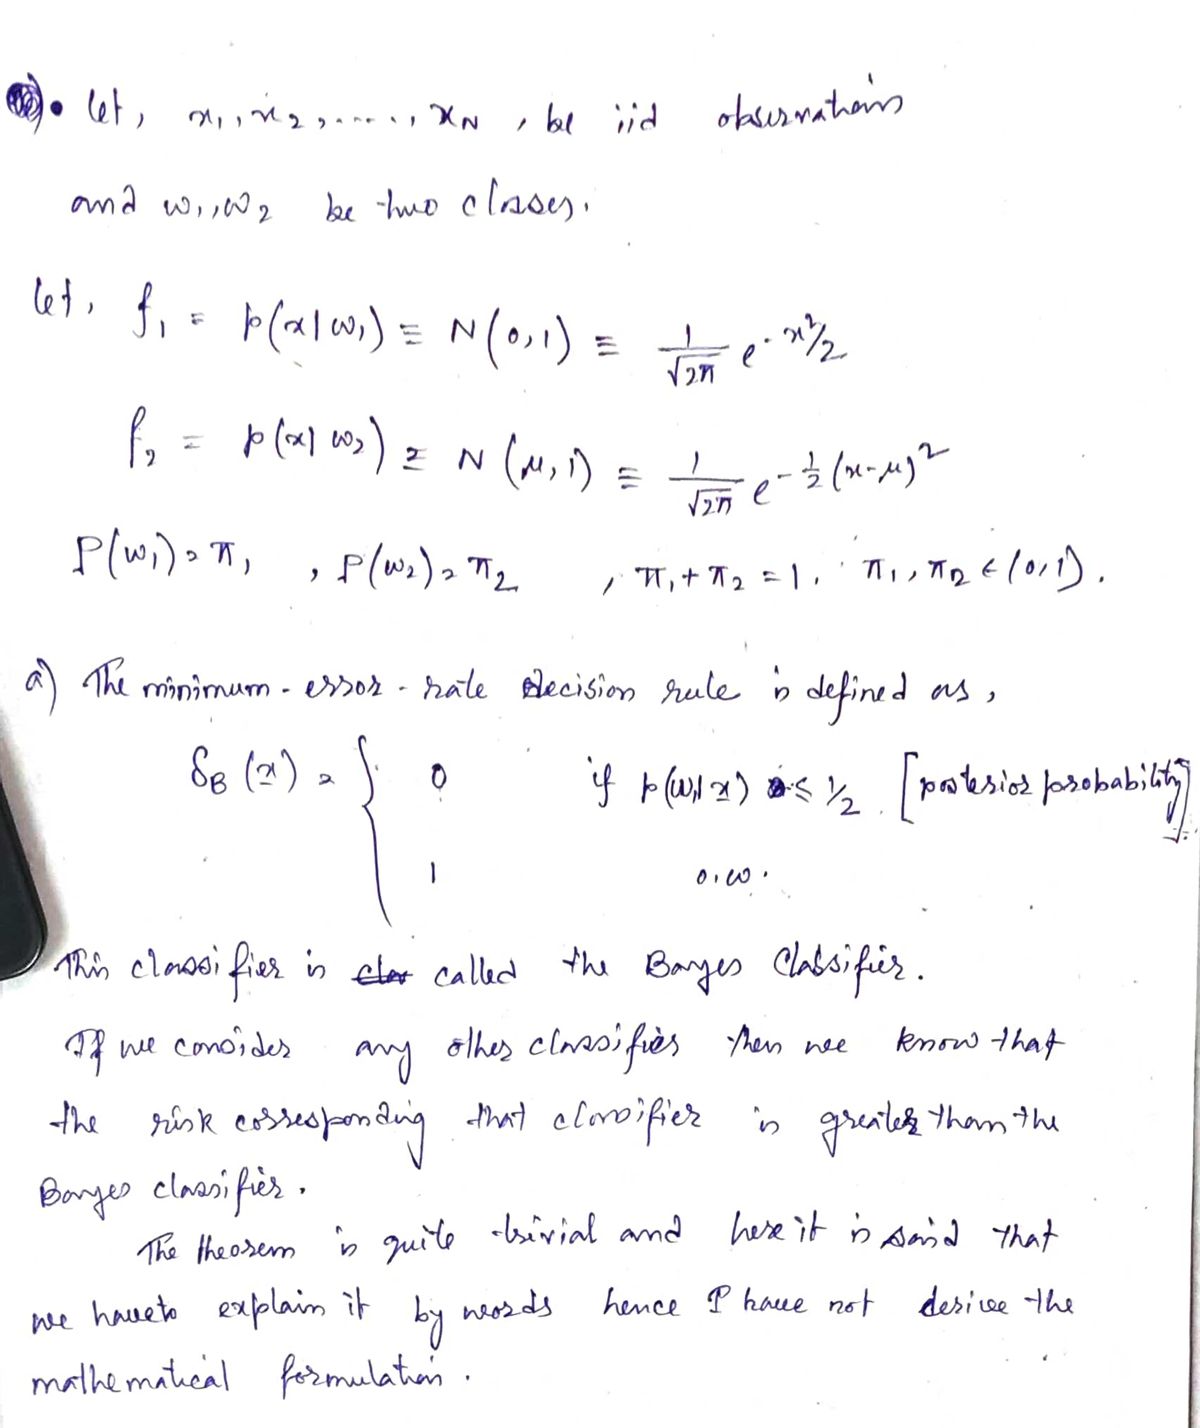 • let, x₁, x₂, ....., x_N, be iid observations
and ω₁, ω₂ be two classes.
let, f₁ = p(x|ω₁) ≡ N(0,1) ≡ 1/√2π e^-x²/2
f₂ = p(x|ω₂) ≡ N(μ,1) ≡ 1/√2π e^-½(x-μ)²
P(ω₁) = π₁, P(ω₂) = π₂, π₁+π₂ = 1. π₁, π₂ ∈ (0,1).
a) The minimum-error-rate decision rule is defined as,
δ_B(x) = { 0 if p(ω₁|x) ≤ ½. [posterior probability]
1 o.w.
This classifier is called the Bayes Classifier.
If we consider any other classifier then we know that
the risk corresponding that classifier is greater than the
Bayes classifier.
The theorem is quite trivial and here it is said that
we have to explain it by words hence I have not derive the
mathematical formulation.